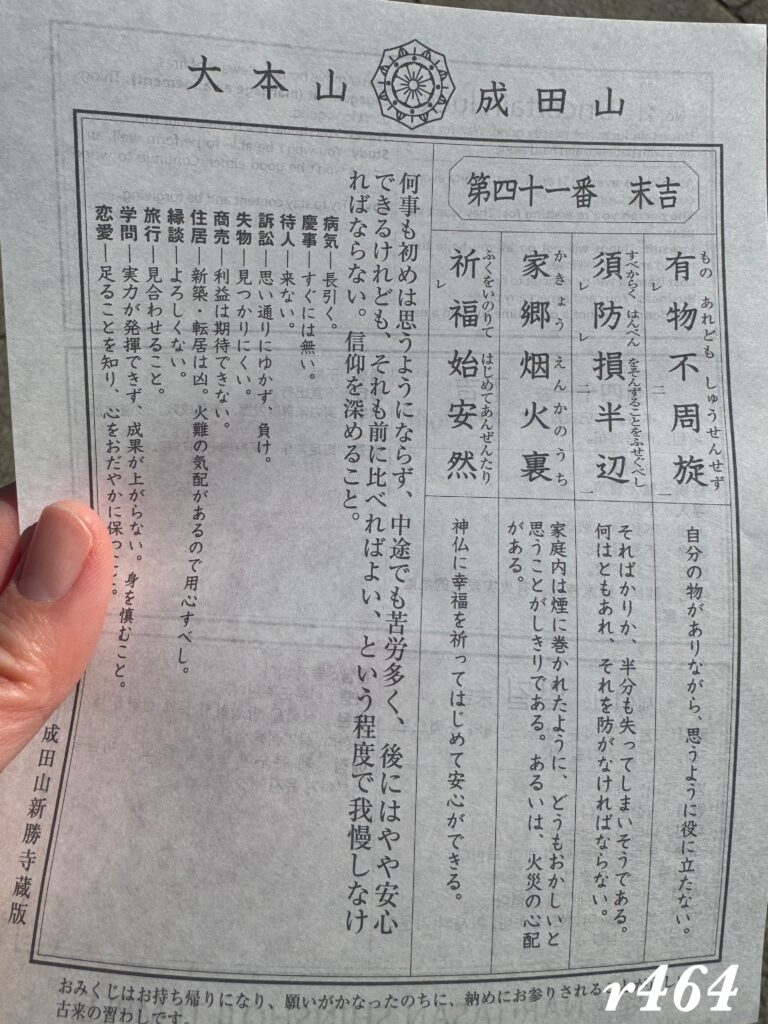 大本山 成田山
第四十一番 末吉
有物不周旋
もの あれども しゅうせんせず
レ 二 一
自分の物がありながら、思うように役に立たない。
須防損半辺
すべからく はんぺん をそんずることをふせぐべし
レ レ 二 一
そればかりか、半分も失ってしまいそうである。
何はともあれ、それを防がなければならない。
家郷烟火裏
かきょう えんかのうち
家庭内は煙に巻かれたように、どうもおかしいと
思うことがしきりである。あるいは、火災の心配
がある。
祈福始安然
ふくをいのりて はじめてあんぜんたり
レ
神仏に幸福を祈ってはじめて安心ができる。
何事も初めは思うようにならず、中途でも苦労多く、後にはやや安心
できるけれども、それも前に比べればよい、という程度で我慢しなけ
ればならない。信仰を深めること。
病気―長引く。
慶事―すぐには無い。
待人―来ない。
訴訟―思い通りにゆかず、負け。
失物―見つかりにくい。
商売―利益は期待できない。
住居―新築・転居は凶。火難の気配があるので用心すべし。
縁談―よろしくない。
旅行―見合わせること。
学問―実力が発揮できず、成果が上がらない。身を慎むこと。
恋愛―足ることを知り、心をおだやかに保つこと。
成田山新勝寺蔵版
おみくじはお持ち帰りになり、願いがかなったのちに、納めにお参りされる
古来の習わしです。
r464